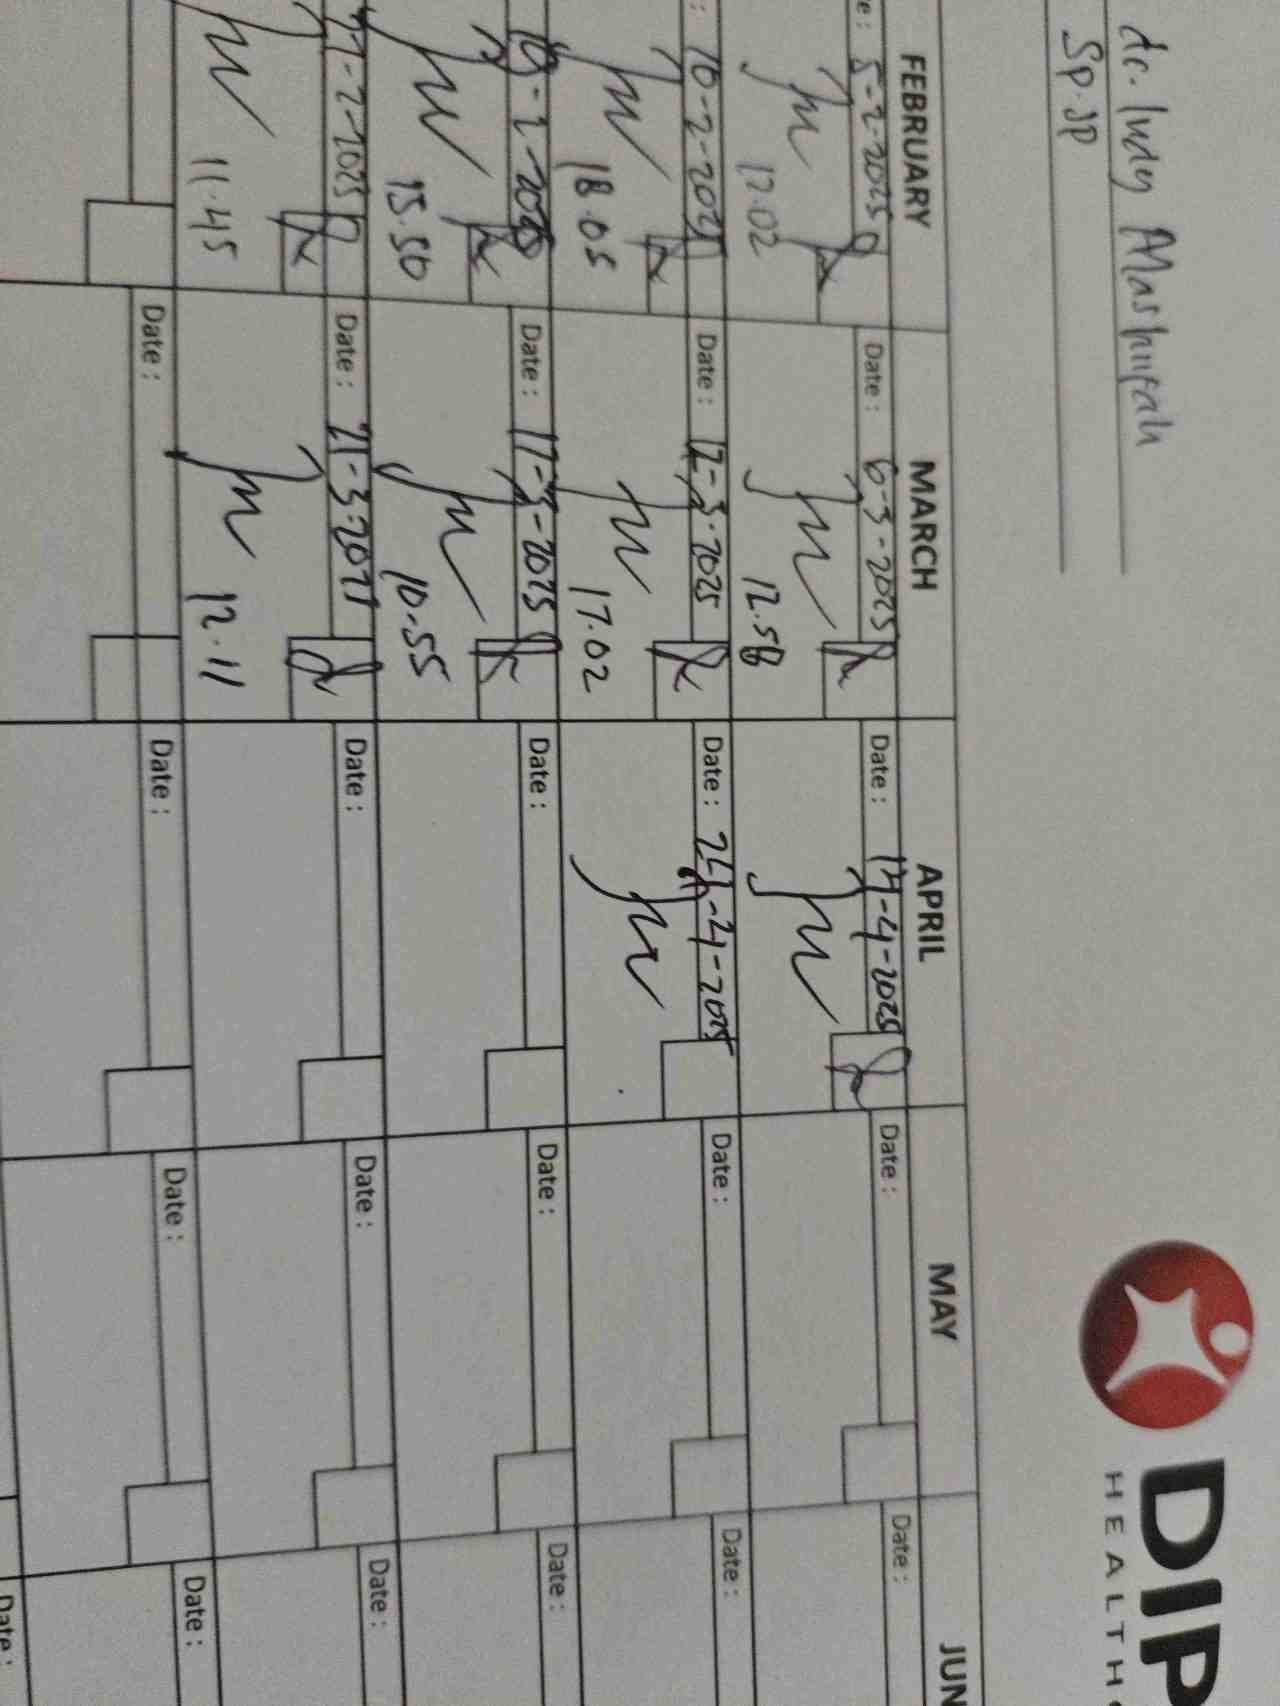 dr. Indy Mashfufah
Sp.JP
DIP
HEALTH
FEBRUARY MARCH APRIL MAY JUN
5-2-2025 Date : 6-3-2025 Date : 17-4-2025 Date : Date :
12.02 12.58
10-2-2025 Date : 12-3-2025 Date : 24-4-2025 Date : Date :
18.05 17.02
19-2-2025 Date : 17-3-2025 Date : Date : Date :
15.50 10.55
-2-2025 Date : 21-3-2025 Date : Date : Date :
11.45 12.11
Date : Date : Date : Date :
Date :